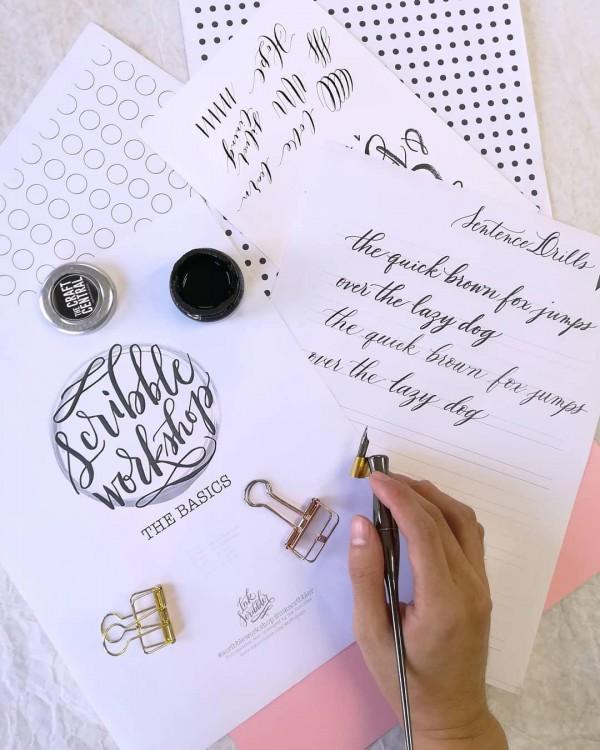 Hope
love learn
Sentence Drills
the quick brown fox jumps
over the lazy dog
the quick brown fox jumps
over the lazy dog
THE CRAFT
CENTRAL
Scribble
workshop
THE BASICS
Ink
Scribbler
#scribbleworkshop @inkscribbler